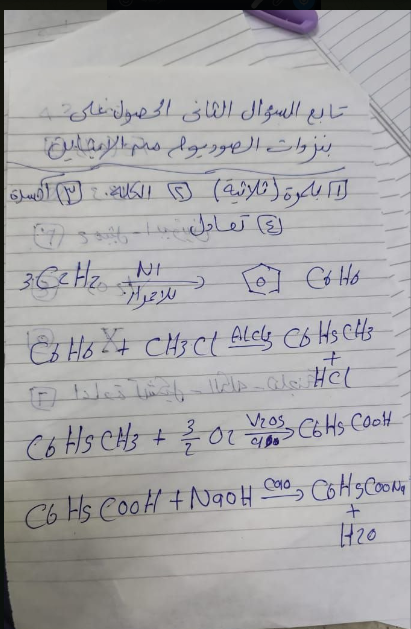 تابع السؤال الثانى الحصول على
بنزوات الصوديوم من الإيثاين
١ بلمرة (ثلاثية) ٢ الكلة ٣ أكسدة
٤ تعادل
3C2H2 Ni للاحمرار → C6H6
C6H6 + CH3Cl AlCl3 → C6H5CH3
+
HCl
C6H5CH3 + 3/2 O2 V2O5 400 → C6H5COOH
C6H5COOH + NaOH CaO → C6H5COONa
+
H2O